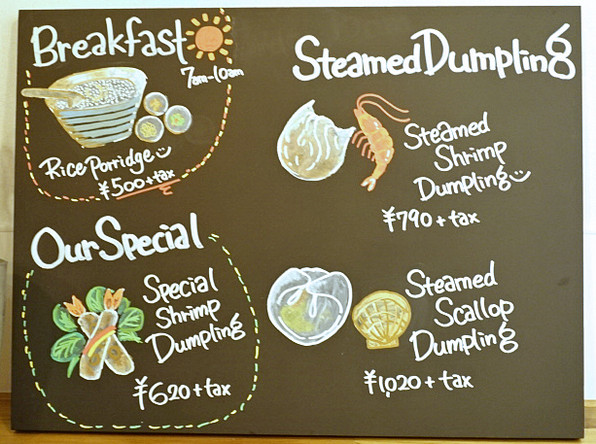 Breakfast
7am-10am
Rice Porridge
¥500+tax
Our Special
Special
Shrimp
Dumpling
¥620+tax
Steamed Dumpling
Steamed
Shrimp
Dumpling
¥790+tax
Steamed
Scallop
Dumpling
¥1,020+tax